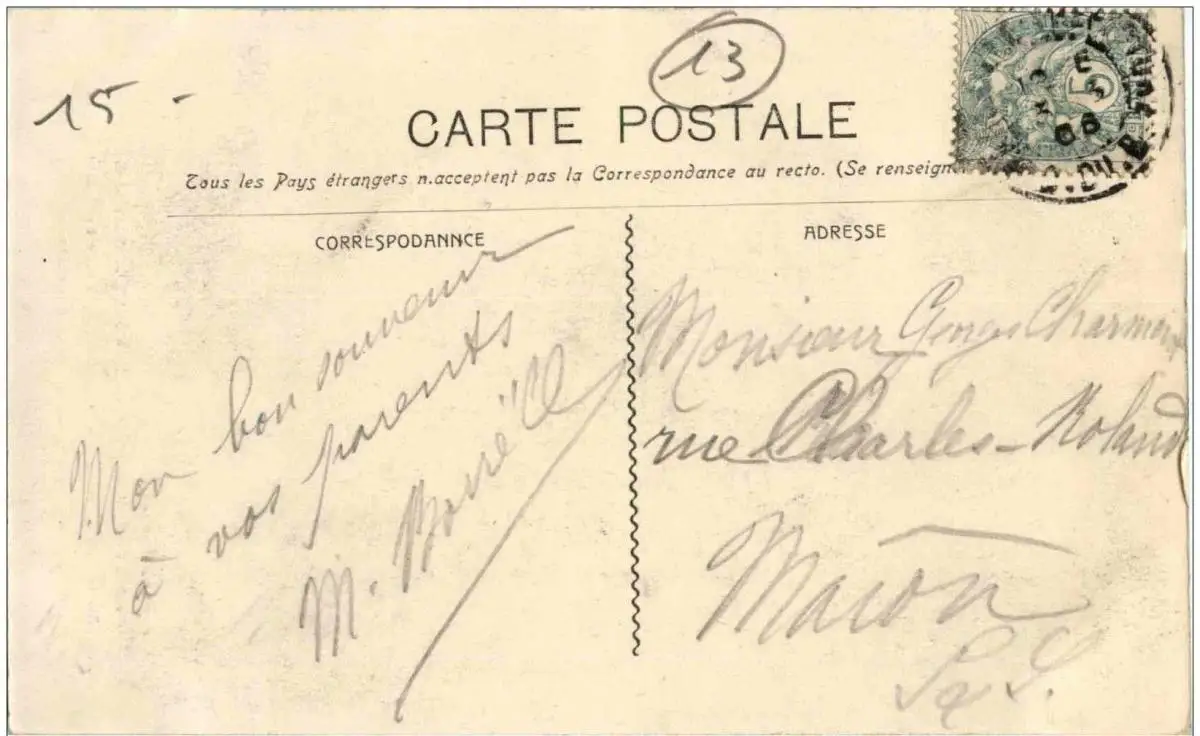 13
15 -
5
CARTE POSTALE
Tous les Pays étrangers n.acceptent pas la Correspondance au recto. (Se renseign
CORRESPODANNCE
ADRESSE
Mon bon souvenir
à vos parents
M.
Monsieur Georges
rue Charles-Roland
Macôn
S & S.